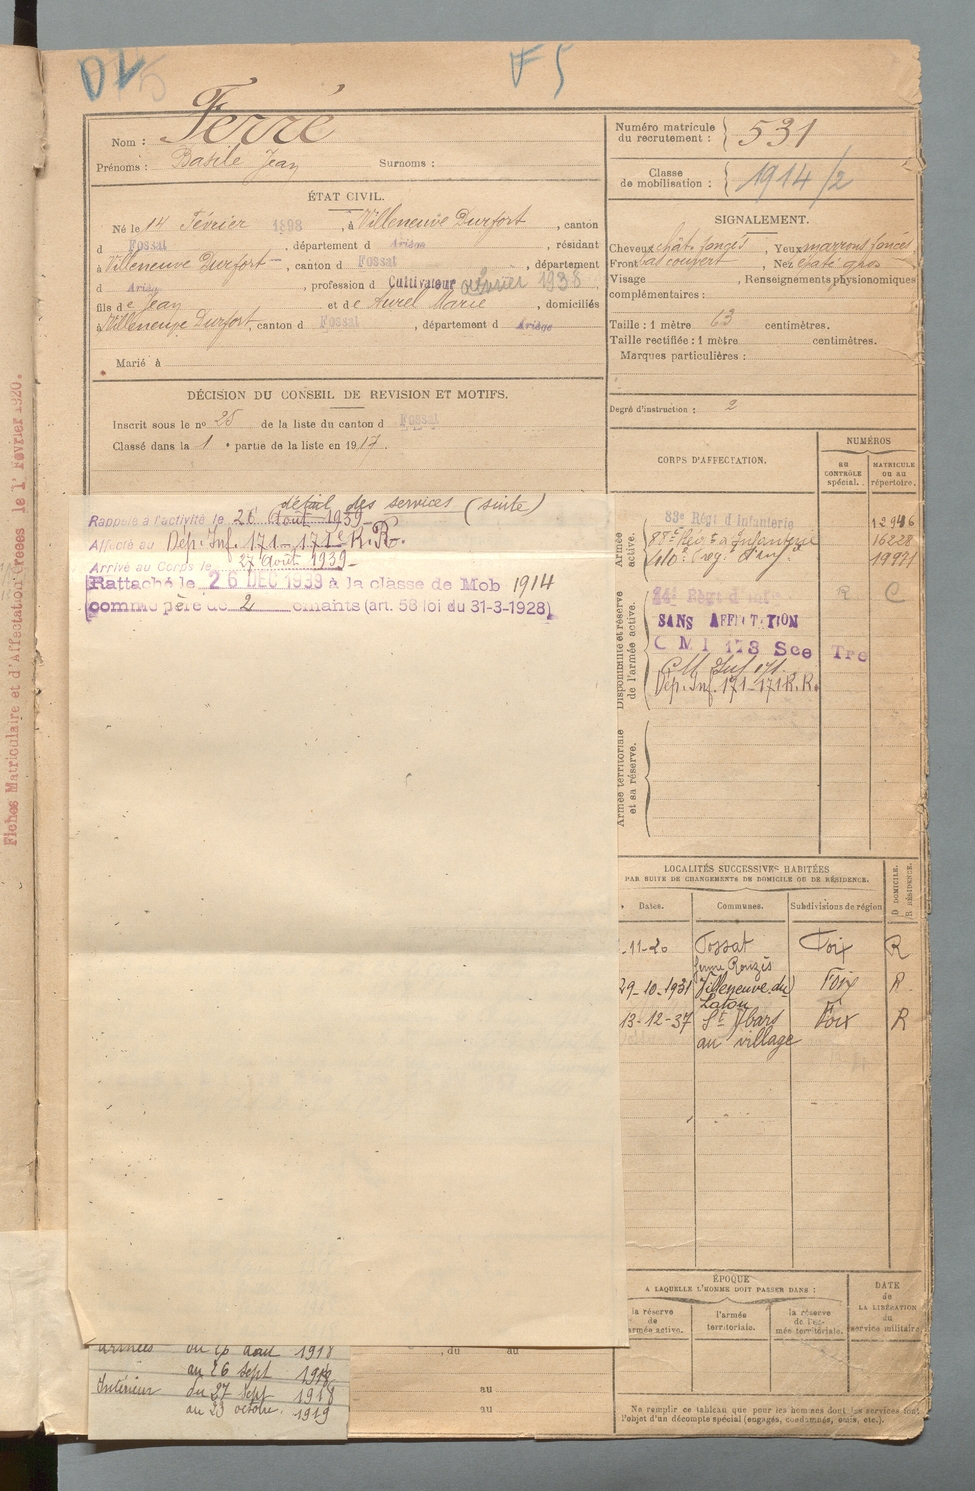 F5
Nom : Ferré
Prénoms : Basile Jean Surnoms :
ÉTAT CIVIL.
Né le 14 Février 1898, à Villeneuve Durfort, canton
d Fossat, département d Ariège, résidant
à Villeneuve Durfort, canton d Fossat, département
d Ariège, profession d Cultivateur 1938
fils de Jean et de Aurel Marie, domiciliés
à Villeneuve Durfort, canton d Fossat, département d Ariège
Marié à
DÉCISION DU CONSEIL DE REVISION ET MOTIFS.
Inscrit sous le nº 25 de la liste du canton d Fossat
Classé dans la 1 e partie de la liste en 1917.
détail des services (suite)
Rappelé à l'activité le 26 Août 1939
Affecté au Dép. Inf. 171 - 171e R.R.
Arrivé au Corps le 27 Août 1939
Rattaché le 26 DEC 1939 à la classe de Mob 1914
comme père de 2 enfants (art. 58 loi du 31-3-1928)
Numéro matricule
du recrutement : 531
Classe
de mobilisation : 1914/2
SIGNALEMENT.
Cheveux chât. foncés, Yeux marrons foncés
Front bas couvert, Nez épaté gros
Visage , Renseignements physionomiques
complémentaires :
Taille : 1 mètre 63 centimètres.
Taille rectifiée : 1 mètre centimètres.
Marques particulières :
Degré d'instruction : 2
CORPS D'AFFECTATION.
NUMÉROS
au
CONTRÔLE
spécial.
MATRICULE
ou au
répertoire.
Armée
active.
83e Régt d'Infanterie 12946
88e Rég. d'Infanterie 16228
Rég. d'Inf. 19971
Disponibilité et réserve
de l'armée active.
Régt d'Inf R C
SANS AFFECTATION
C M I 178 Sce Tre
CM Inf 171
Dép. Inf. 171-171 R.R.
Armée territoriale
et sa réserve.
LOCALITÉS SUCCESSIVES HABITÉES
PAR SUITE DE CHANGEMENTS DE DOMICILE OU DE RÉSIDENCE.
Dates. Communes. Subdivisions de région
D DOMICILE.
R RÉSIDENCE.
-11-20 Fossat Foix R
29-10-1931 Villeneuve du Foix R
Latou
13-12-37 St Ybars Foix R
au village
ÉPOQUE
A LAQUELLE L'HOMME DOIT PASSER DANS :
la réserve
de
l'armée active.
l'armée
territoriale.
la réserve
de l'armée territoriale.
DATE
de
LA LIBÉRATION
du
service militaire.
Ne remplir ce tableau que pour les hommes dont les services font
l'objet d'un décompte spécial (engagés, condamnés, omis, etc.).
, du au
au
au
Armées du août 1918
au 26 sept 1918
Intérieur du 27 sept 1918
au 23 octobre 1919
Fiches Matriculaire et d'Affectation créées le 1er Février 1920.